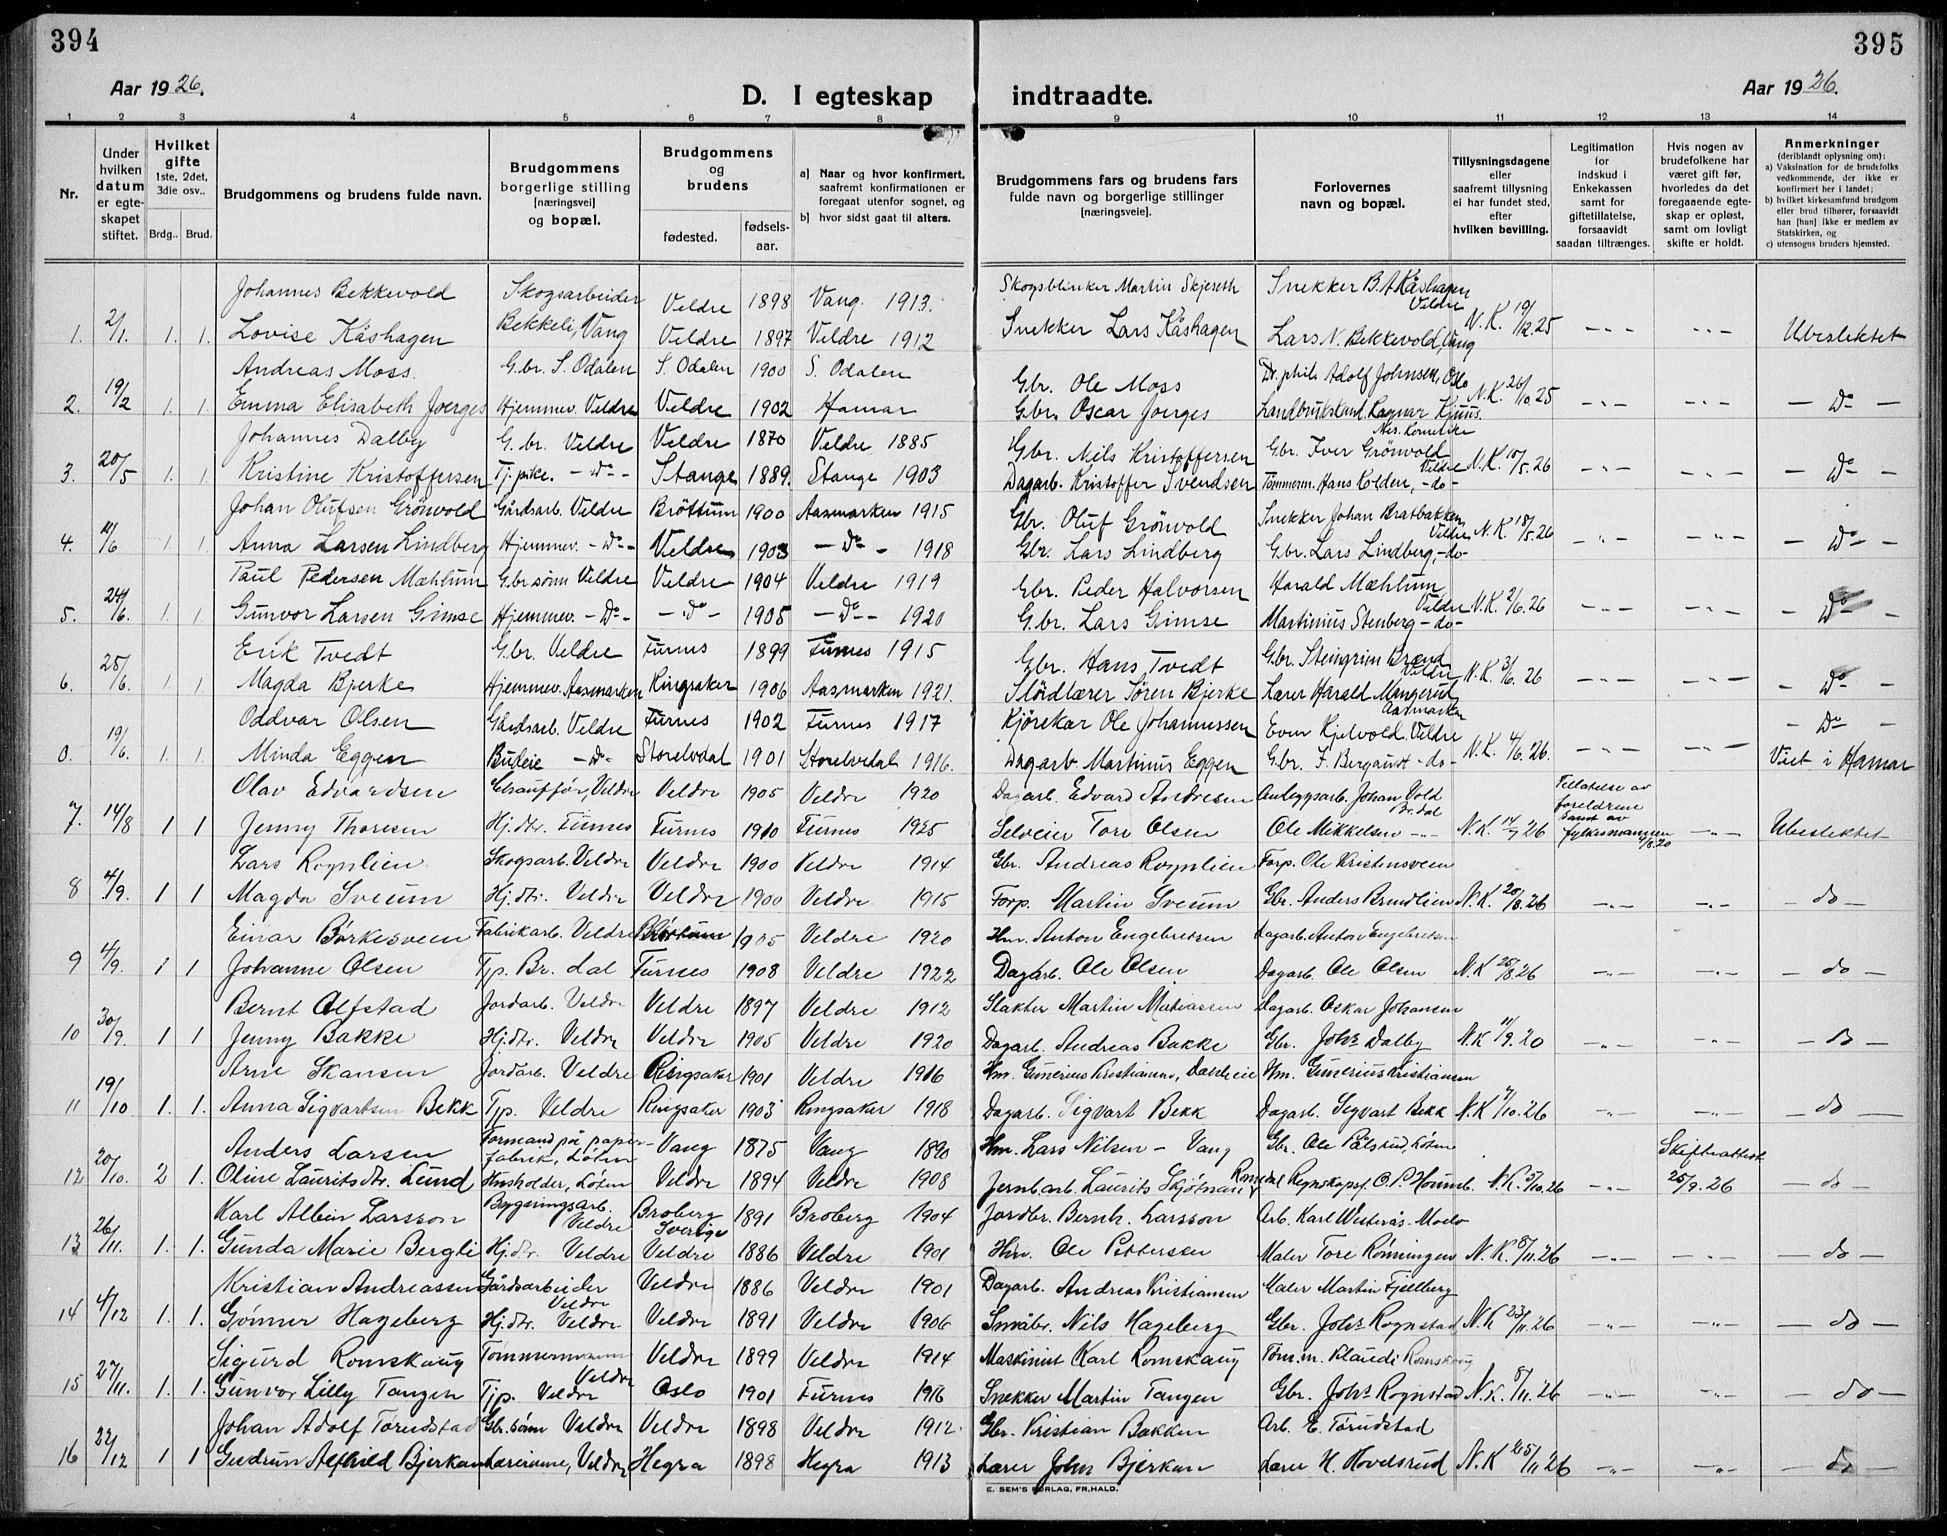 394
395
Aar 1926.
D. I egteskap
indtraadte.
Aar 1926.
1 2 3 4 5 6 7 8 9 10 11 12 13 14
Nr.
Under hvilken datum er egteskapet stiftet.
Hvilket gifte 1ste, 2det, 3die osv..
Brdg.. Brud.
Brudgommens og brudens fulde navn.
Brudgommens borgerlige stilling [næringsvei] og bopæl.
Brudgommens og brudens
fødested. fødsels-aar.
a) Naar og hvor konfirmert, saafremt konfirmationen er foregaat utenfor sognet, og
b) hvor sidst gaat til alters.
Brudgommens fars og brudens fars fulde navn og borgerlige stillinger [næringsveie].
Forlovernes navn og bopæl.
Tillysningsdagene eller saafremt tillysning ei har fundet sted, efter hvilken bevilling.
Legitimation for indskud i Enkekassen samt for giftetillatelse, forsaavidt saadan tiltrænges.
Hvis nogen av brudefolkene har været gift før, hvorledes da det foregaaende egteskap er opløst, samt om lovligt skifte er holdt.
Anmerkninger (deriblandt oplysning om):
a) Vaksination for de brudefolks vedkommende, der ikke er konfirmert her i landet;
b) hvilket kirkesamfund brudgom eller brud tilhører, forsaavidt han [hun] ikke er medlem av Statskirken, og
c) utensogns bruders hjemsted.
Johannes Bekkevold Skogsarbeider Veldre 1898 Vang. 1913. Skogsblinker Martin Skjeseth Snekker B. A. Kåshagen Veldre
1. 2/1. 1. 1. Lovise Kåshagen Bekkeli, Vang Veldre 1897 Veldre 1912 Snekker Lars Kåshagen Lars N. Bekkevold, Vang N.K. 19/12.25 -"- -"- Ubeslektet
Andreas Moss. G.br. S. Odalen S. Odalen 1900 S. Odalen Gbr. Ole Moss Dr. phil. Adolf Johnsen, Oslo
2. 19/2 1. 1. Emma Elisabeth Joerges Hjemmev. Veldre Veldre 1902 Hamar Gbr. Oscar Joerges Landbrukskand. Ragnar Kjuus. Nes. Hedmark N.K. 26/10 25 -"- -"- - Do -
Johannes Dalby G.br. Veldre Veldre 1870 Veldre 1885 Gbr. Nils Kristoffersen Gbr. Iver Grönvold Veldre
3. 20/5 1. 1. Kristine Kristoffersen Tj.pike. -do- Stange 1889. Stange 1903 Dagarb. Kristoffer Svendsen Tömmerm. Hans Kolden, -do- N.K. 10/5.26 -"- -"- - Do -
Johan Olufsen Grönvold Gårdsarb. Veldre Bröttum 1900 Aasmarken 1915 Gbr. Oluf Grönvold Snekker Johan Bratbakken Veldre
4. 21/6 1. 1. Anna Larsen Lindberg Hjemmev. -do- Veldre 1903 - Do - 1918 Gbr. Lars Lindberg G.br. Lars Lindberg, -do- N.K. 18/5.26 -"- -"- - Do -
Paul Pedersen Mæhlum G.br.sönn Veldre Veldre 1904 Veldre 1919 Gbr. Peder Halvorsen Harald Mæhlum Veldre
5. 24/6. 1. 1. Gunvor Larsen Gimse Hjemmev. -Do- -do- 1905 -Do- 1920 G.br. Lars Gimse Martinius Stenberg -do- N.K. 2/6.26 -"- -"- - Do -
Erik Tvedt G.br. Veldre Furnes 1899 Furnes 1915 Gbr. Hans Tvedt G.br. Steingrim Brænd Veldre
6. 25/6. 1. 1. Magda Bjerke Hjemmev. Aasmarken Ringsaker 1906 Aasmarken 1921. Slöidlærer Sören Bjerke Lærer Harald Mangerud Aasmarken N.K. 3/6. 26 -"- -"- - Do -
Oddvar Olsen Gårdsarb. Veldre Furnes 1902 Furnes 1917 Kjörekar Ole Johannessen Even Kjelvold Veldre - Do -
0. 19/6. 1. 1. Minda Eggen Budeie -Do- Storelvdal 1901 Storelvdal 1916. Dagarb Martinus Eggen Gbr. F. Bergaust -do- N.K. 4/6.26. -"- -"- Viet i Hamar
Olav Edvardsen Chauffør, Veldre Veldre 1905 Veldre 1920 Dagarb. Edvard Andresen Anleggsarb. Johan Vold Br.dal Tillatelse av foreldrene samt av fylkesmannen
7. 14/8 1 1 Jenny Thoresen Hj.dtr. Furnes Furnes 1910 Furnes 1925 Selveier Tore Olsen Ole Mikkelsen -"- N.K. 14/7 26 -"- Ubeslektet
Lars Rognlien Skogsarb. Veldre Veldre 1900 Veldre 1914 Gbr. Andreas Rognlien Forp. Ole Kristensveen
8 4/9. 1 1 Magda Sveum Hj.dtr. Veldre Veldre 1900 Veldre 1915 Forp. Martin Sveum Gbr. Anders Brendlien N.K. 20/8.26 -"- -"- - do -
Einar Børkesveen Fabrikarb. Veldre Bröttum 1905 Veldre 1920 Hm. Anton Engebretsen Dagarb. Anton Engebretsen
9 4/9. 1 1 Johanne Olsen Tjp. Br. dal Furnes 1908 Veldre 1922 Dagarb. Ole Olsen Dagarb. Ole Olsen N.K 25/8.26 -"- -"- - do -
Bernt Alfstad Jordarb. Veldre Veldre 1897 Veldre 1912 Slakter Martin Matiassen Dagarb. Oskar Johansen
10 30/9. 1 1 Jenny Bakke Hj.dtr. Veldre Veldre 1905 Veldre 1920 Dagarb. Andreas Bakke Gbr. Johs Dalby N.K 11/9.26 -"- -"- - do -
Arne Skansen Jordarb. Veldre Ringsaker 1901 Veldre 1916 Hm. Gunerius Kristiansen, Hm. Gunerius Kristiansen
11 19/10 1. 1. Anna Sigvartsen Bekk Tjp. Veldre Ringsaker 1903 Ringsaker 1918 Dagarb. Sigvart Bekk Dagarb. Sigvart Bekk N.K 4/10.26 -"- -"- - do -
Anders Larsen Formand på papirfabrik, Løten Vang 1875 Vang 1890 Hm. Lars Nilsen - Vang Gbr. Ole Pålsrud, Løten Skifteattest
12 20/10. 2 1. Oline Lauritsdtr. Lund Husholder, Løten Veldre 1894 Veldre 1908 Jernb.arb. Laurits Skjötnæ Romedal Regnskapsf. O. P. Houmb. N.K. 5/10.26 -"- 25/9.26 - do -
Karl Albin Larsson Bygningsarb. Veldre Broberg Sverige 1891 Broberg 1904 Jordbr. Bernh. Larsson Arb. Karl Westerås. Moelv
13 26/11. 1. 1. Gunda Marie Bergli Hj.dtr. Veldre Veldre 1886 Veldre 1901 Hm. Ole Pettersen Maler Tore Rønningen N.K. 8/11.26 -"- -"- - do -
Kristian Andreassen Gårdsarbeider Veldre Veldre 1886 Veldre 1901 Dagarb. Andreas Kristiansen Maler Martin Fjellberg
14 4/12 1. 1. Gjønner Hageberg Hj.dtr. Veldre Veldre 1891 Veldre 1906 Småbr. Nils Hageberg Gbr. Johs Rognstad N.K 23/11.26 -"- -"- - do -
Sigurd Romskaug Tømmermann Veldre Veldre 1899 Veldre 1914 Maskinist Karl Romskaug Tøm.m. Klaudi Romskaug
15 27/11. 1. 1. Gunvor Lilly Tangen Tjp. Veldre Oslo 1901 Furnes 1916 Snekker Martin Tangen Gbr. Johs Rognstad N.K. 8/11.26 -"- -"- - do -
Johan Adolf Torudstad Gbr.sønn Veldre Veldre 1898 Veldre 1912 Gbr. Kristian Bakken Arb. E. Torudstad
16 22/12 1 1 Gudrun Alfhild Bjerkan Lærerinne, Veldre Hegra 1898 Hegra 1913 Lærer John Bjerkan Lærer H. Hovelsrud N.K 25/11 26 -"- -"- - do -
E. SEM'S FORLAG, FR.HALD.